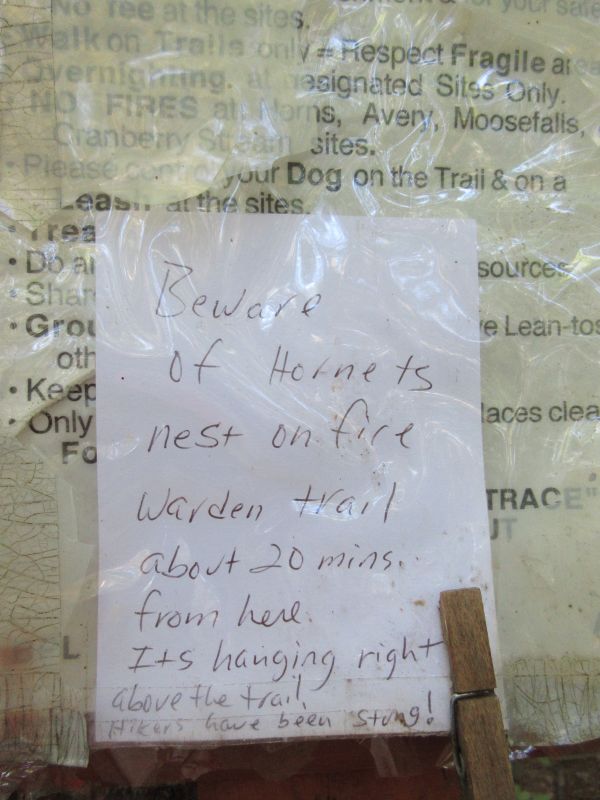 No fee at the sites.
Walk on Trails only = Respect Fragile area
Overnighting at designated Sites Only.
NO FIRES at Horns, Avery, Moosefalls,
Cranberry Stream sites.
• Please control your Dog on the Trail & on a
Leash at the sites.
• Do
sources
• Shar
• Grou
Lean-tos
oth
• Keep
• Only
laces clea
Fo
TRACE"
Beware
of Hornets
nest on fire
Warden trail
about 20 mins.
from here.
Its hanging right
above the trail.
Hikers have been stung!